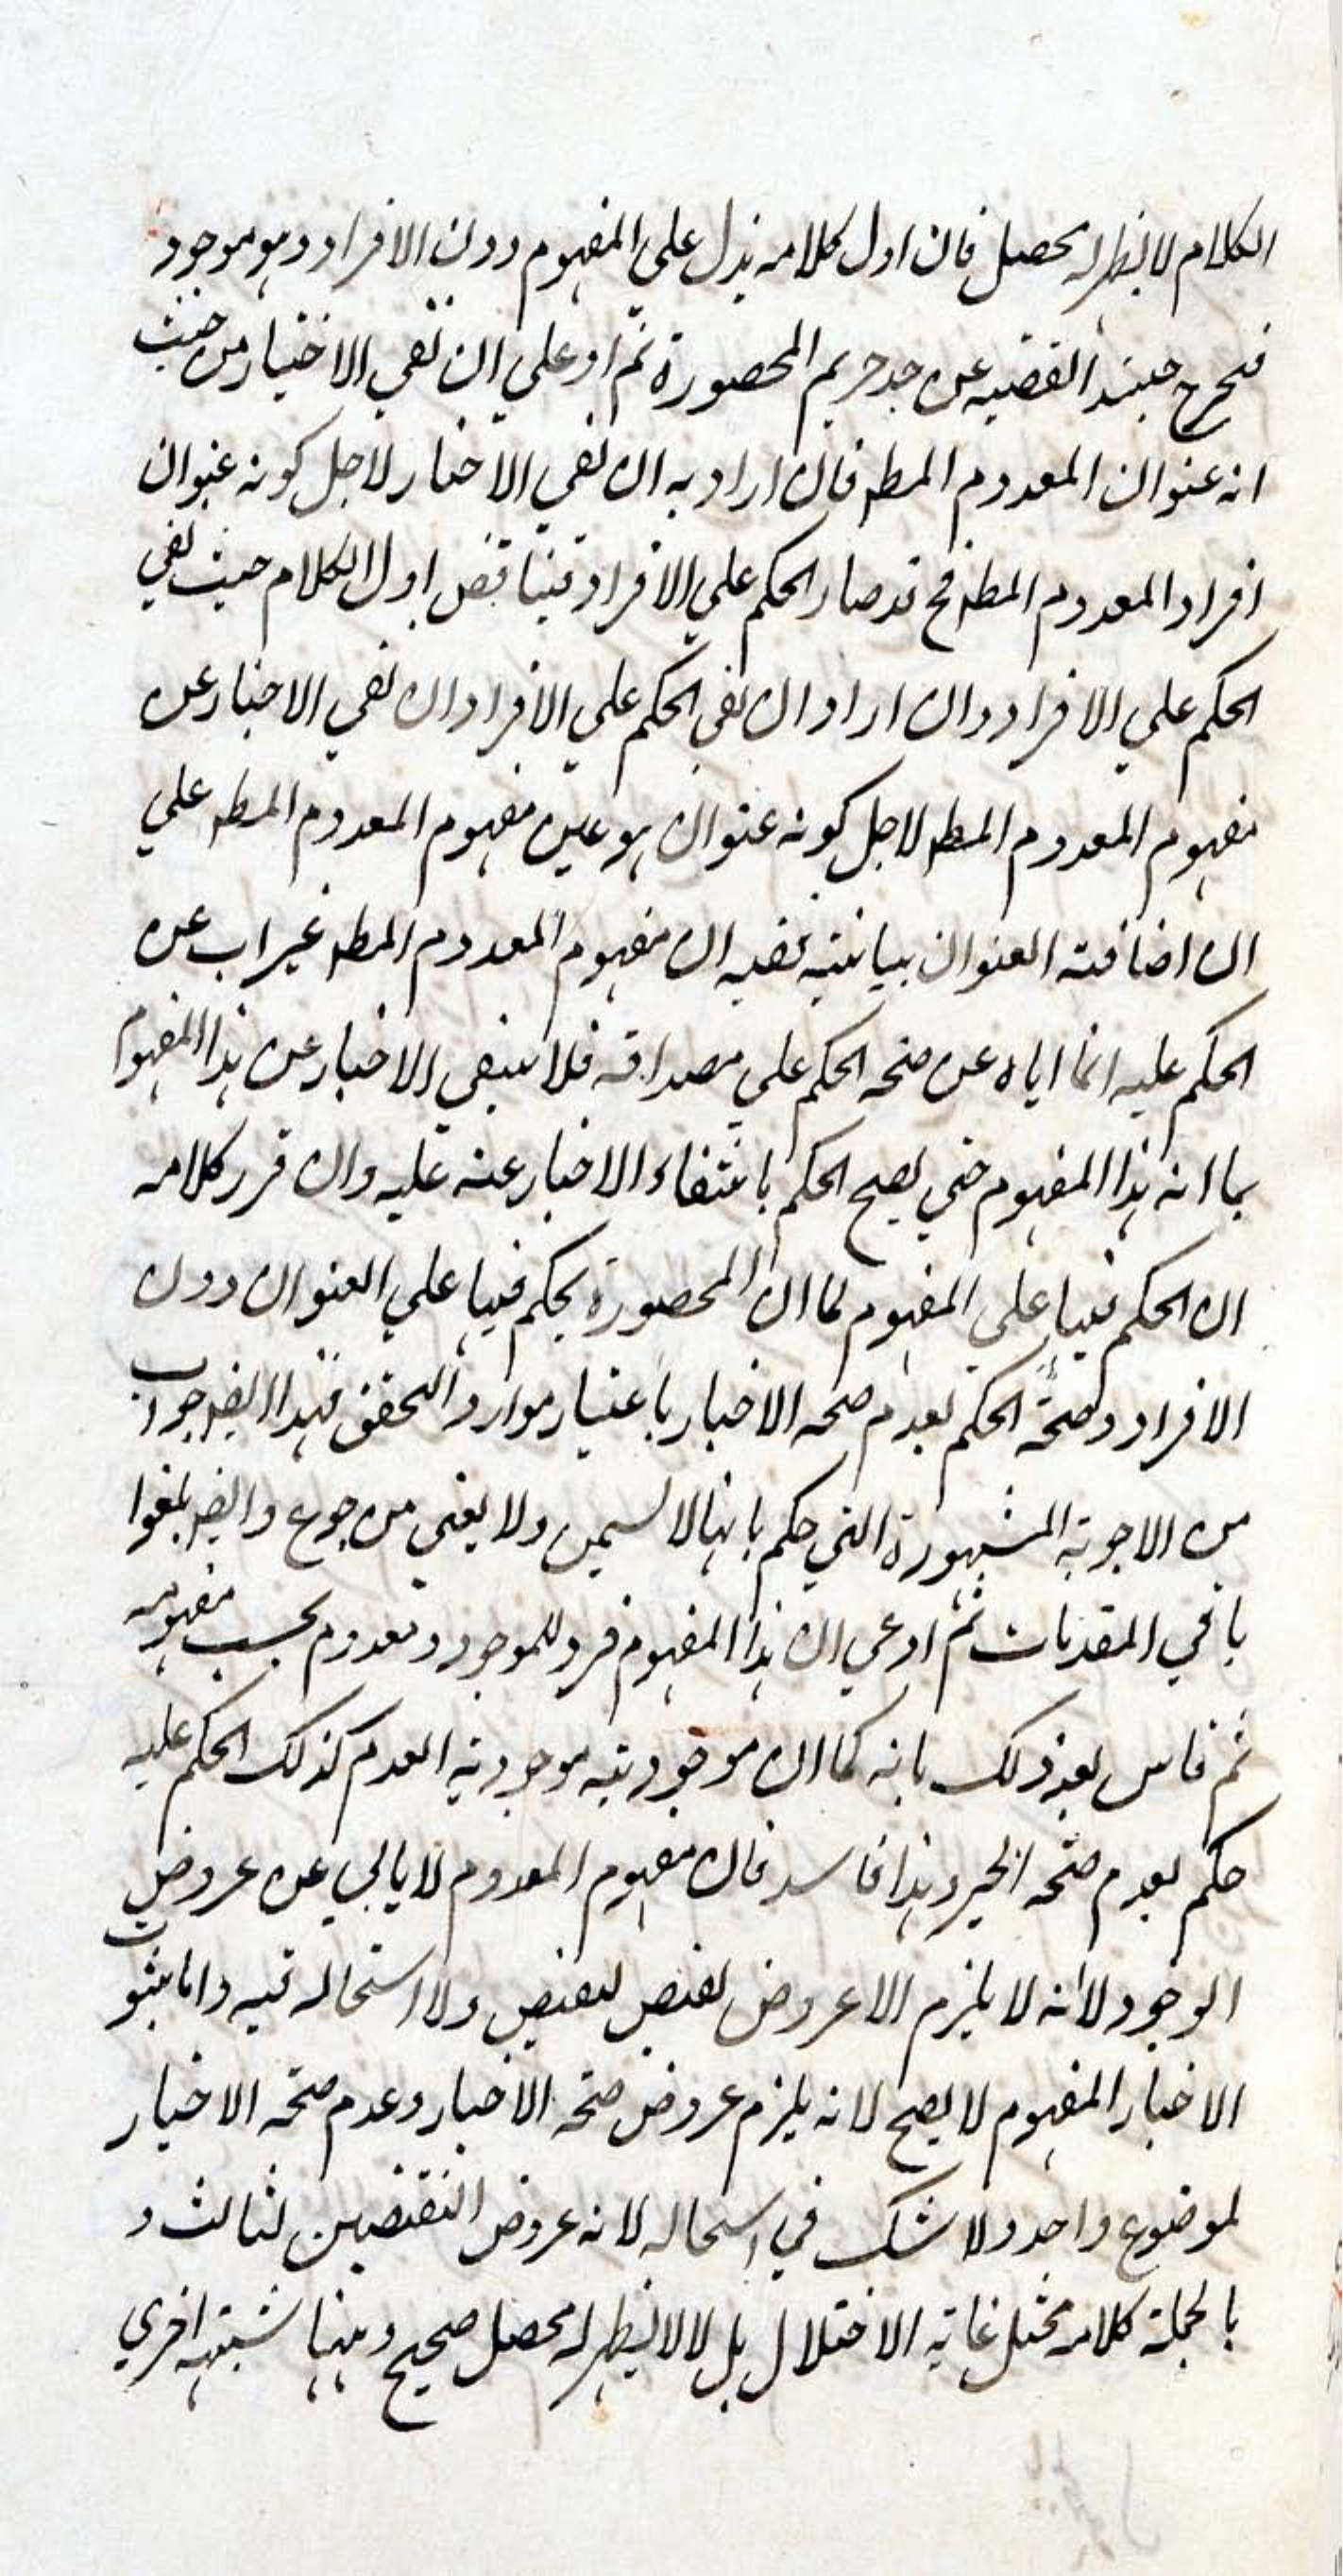 الكلام لا يظهر له محصل فان اول كلامه يدل على المفهوم دون الافراد وهو موجود
فيخرج حينئذ القضيه عن حد حريم المحصورة ثم ادعى ان نفى الاخبار من حيث
انه عنوان المعدوم المط فان اراد به ان نفى الاخبار لاجل كونه عنوان
افراد المعدوم المط فح قد صار الحكم على الافراد فيناقض اول الكلام حيث نفى
الحكم على الافراد وان اراد ان نفى الحكم على الافراد ان نفى الاخبار عن
مفهوم المعدوم المط لاجل كونه عنوان هو عين مفهوم المعدوم المط على
ان اضافته العنوان بيانيته ففيه ان مفهوم المعدوم المط غير اب عن
الحكم عليه انما اباه عن صحه الحكم على مصداقه فلا ينفى الاخبار عن هذا المفهوم
بما انه هذا المفهوم حتى يصح الحكم بانتفاء الاخبار عنه عليه وان قرر كلامه
ان الحكم فيها على المفهوم لما ان المحصورة يحكم فيها على العنوان دون
الافراد وصحة الحكم بعدم صحه الاخبار باعتبار موارد التحقق فهذا ايض جواب
من الاجوبة المشهورة التى حكم بانها لا تسمن ولا يغنى من جوع وايض يلغوا
باقى المقدمات ثم ادعى ان هذا المفهوم فرد للموجود ومعدوم بحسب مفهومه
ثم قاس بعد ذلك بانه كما ان موجوديته موجودية المعدوم كذلك الحكم عليه
حكم بعدم صحه الخبر وهذا فاسد فان مفهوم المعدوم لا يابى عن عروض
الوجود لانه لا يلزم الا عروض نقيض لنقيض ولا استحاله فيه واما ثبوت
الاخبار المفهوم لا يصح لانه يلزم عروض صحه الاخبار وعدم صحه الاخبار
لموضوع واحد ولا شك في استحاله لانه عروض النقيضين لثالث و
بالجملة كلامه مختل غاية الاختلال بل لا لا يظهر له محصل صحيح وههنا شبهه اخرى